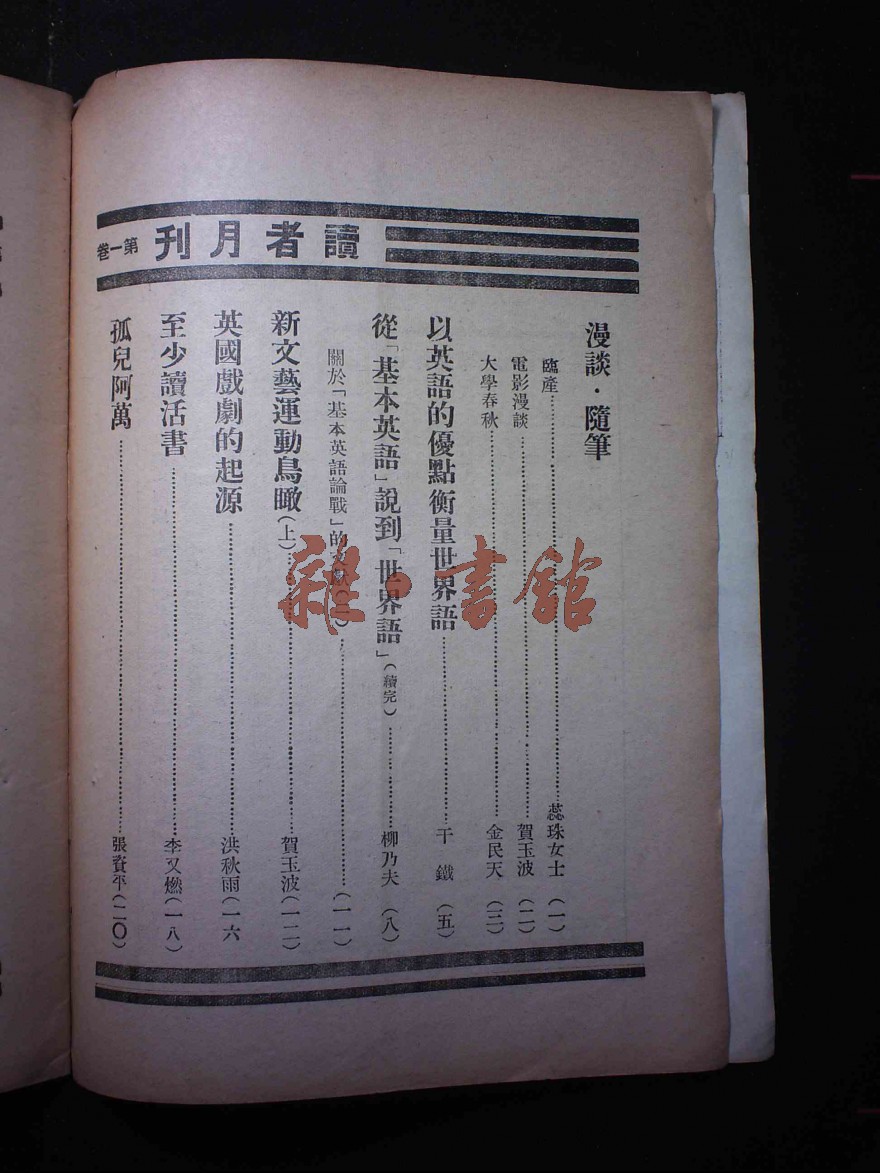 讀者月刊 第一卷
漫談・隨筆
臨產……蕊珠女士（一）
電影漫談……賀玉波（二）
大學春秋……金民天（三）
以英語的優點衡量世界語……干鐵（五）
從「基本英語」說到「世界語」（續完）……柳乃夫（八）
關於「基本英語論戰」的文獻（一）……（一一）
新文藝運動鳥瞰（上）……賀玉波（一二）
英國戲劇的起源……洪秋雨（一六
至少讀活書……李又燃（一八）
孤兒阿萬……張資平（二〇）
雜・書館